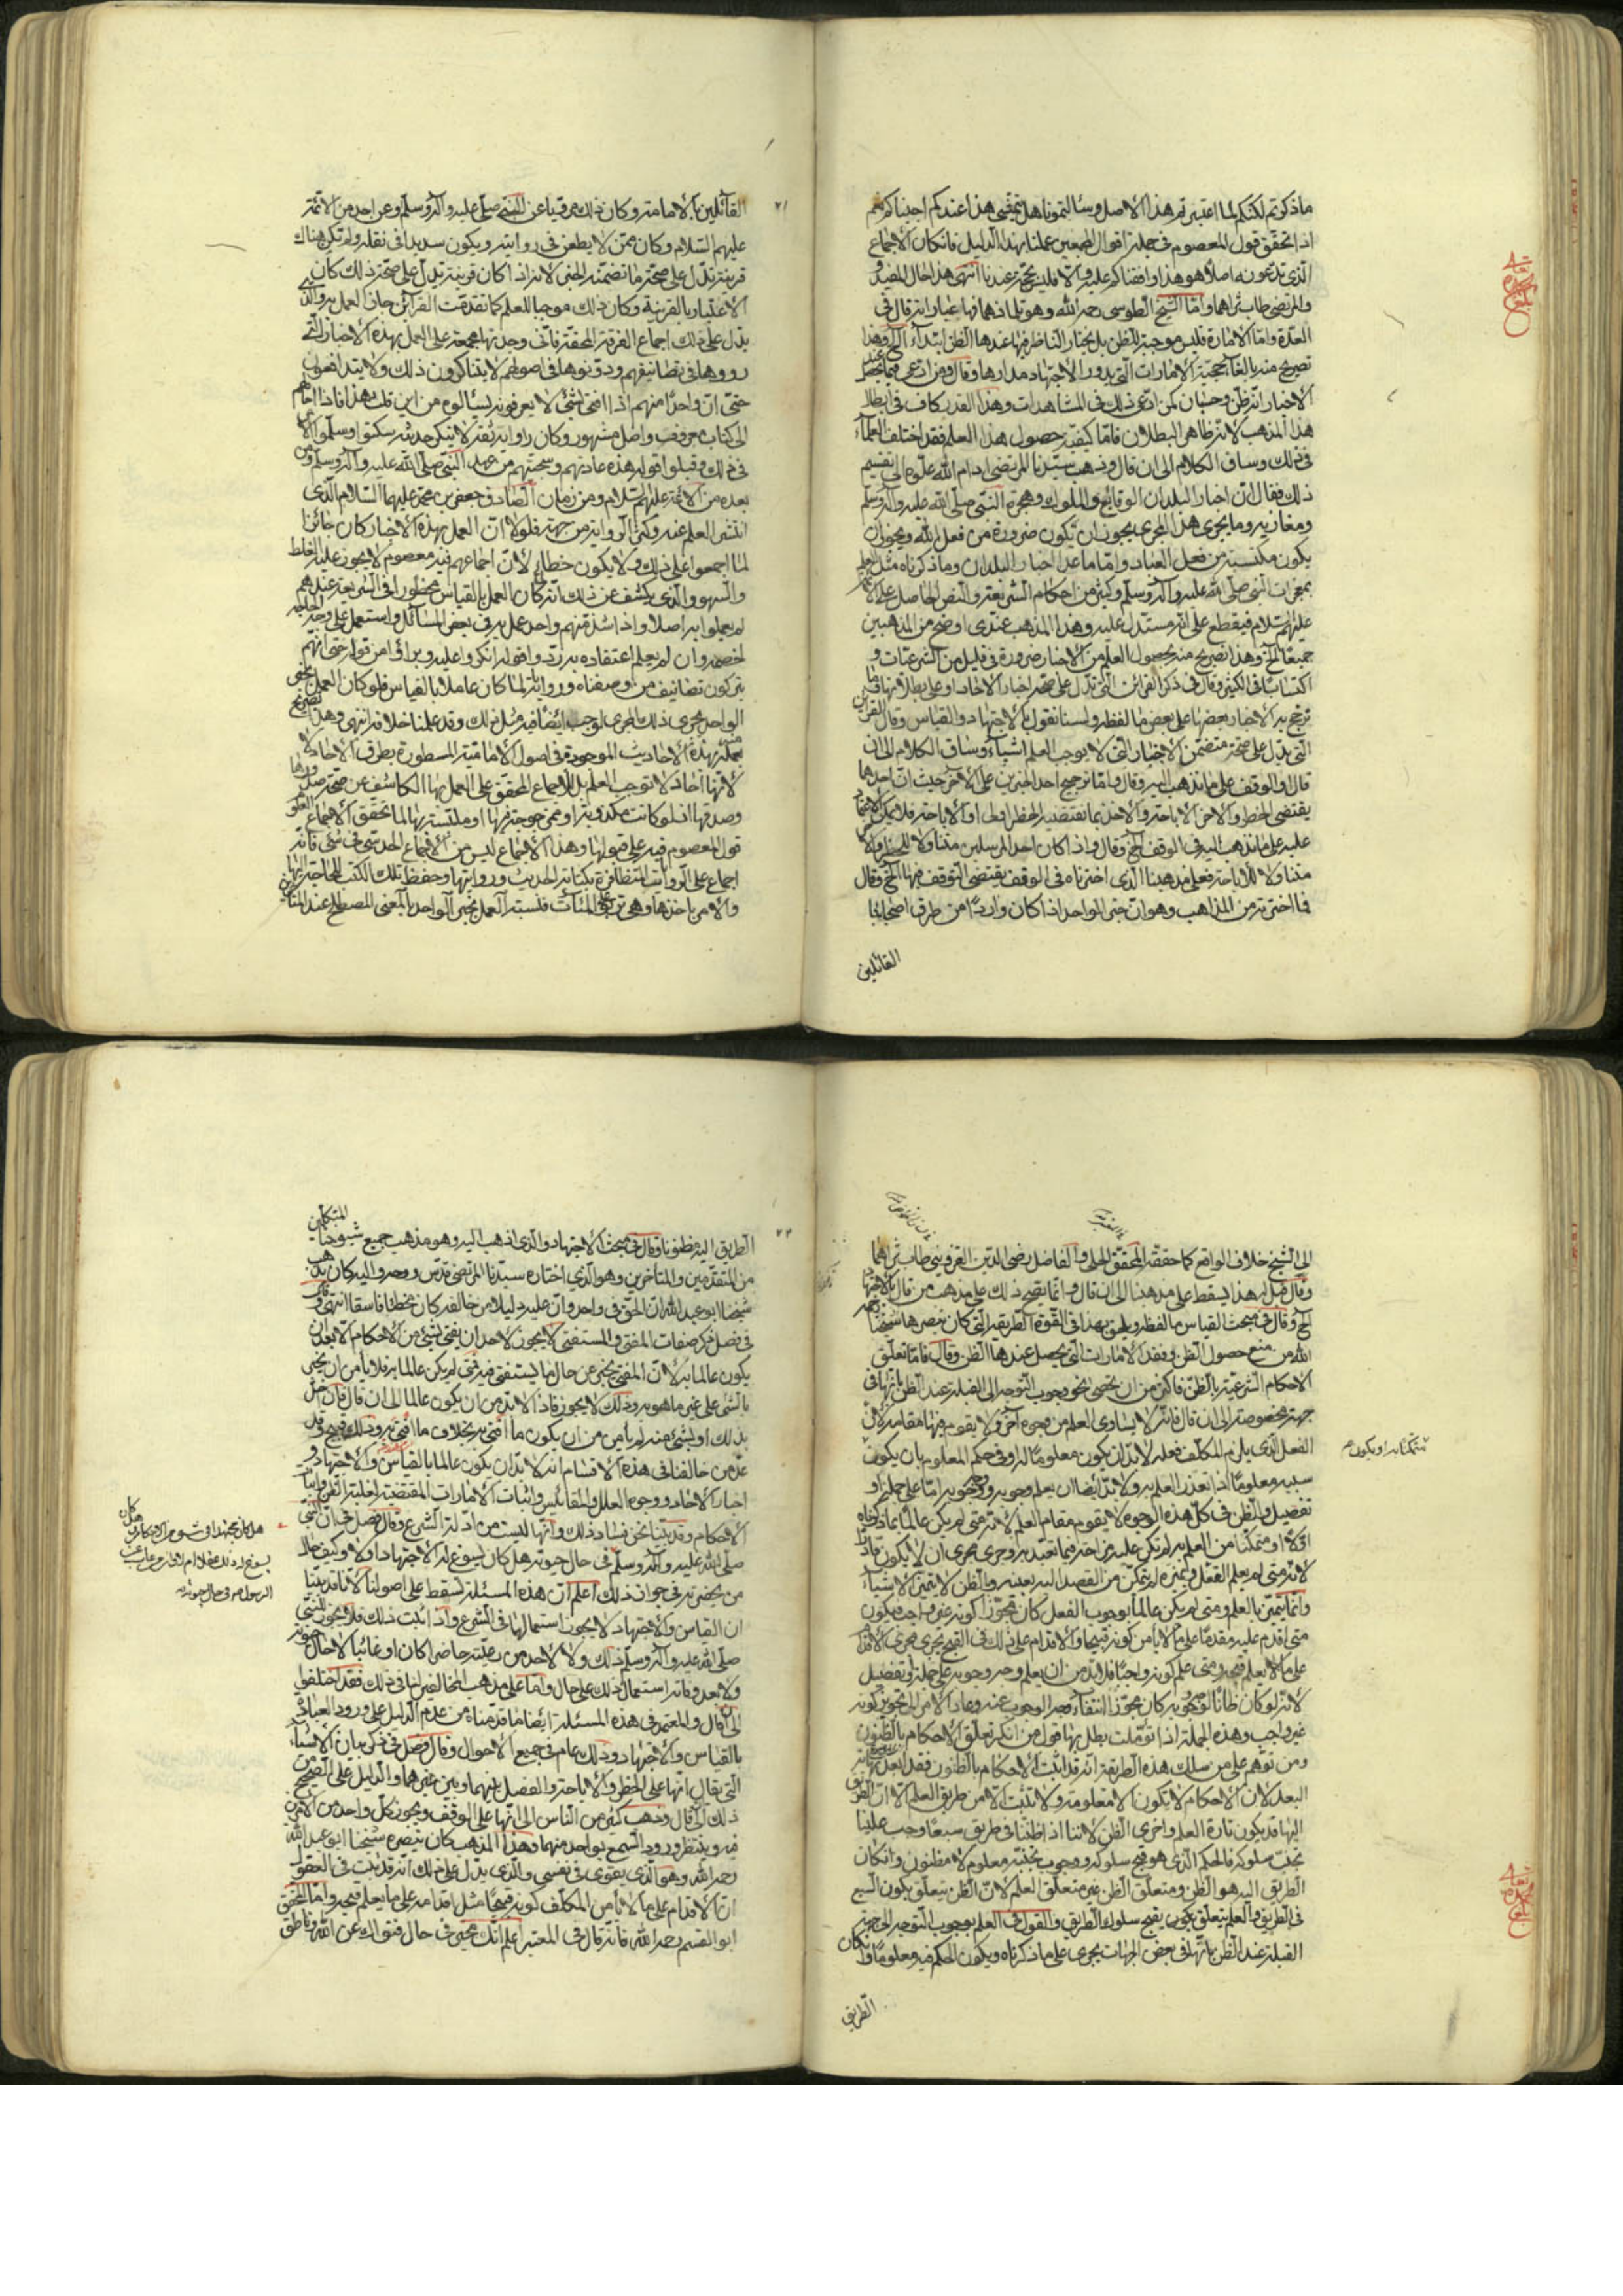 ما ذكرتم لكنكم لما اعتبرتم هذا الاصل وسالتمونا هل بمقتضى هذا عندكم اجبناكم نعم
اذا تحقق قول المعصوم في جملة اقوال المجمعين عملنا بهذا الدليل فانكان الاجماع
الذي تدعونه اصلا هو هذا وافقناكم عليه والا فليس بحجة عندنا انتهى هذا حال المفيد
والمرتضى طاب ثراهما واما الشيخ الطوسي رحمه الله وهو تلميذهما فهذه عباراته قال في
العدة واما الامارة فليس موجبة للظن بل يختار الناظر فيها عندها الظن ابتداء الخ وهذا
تصريح منه بالغاء حجية الامارات التي يدور الاجتهاد مدارها وقال ومن ادعى فيما عند
الاخبار انه ظن وحسبان كمن ادعى ذلك في المشاهدات وهذا القدر كاف في ابطال
هذا المذهب لانه ظاهر البطلان فاما كيفية حصول هذا العلم فقد اختلف العلماء
في ذلك وساق الكلام الى ان قال وذهب سيدنا المرتضى ادام الله علوه الى تقسيم
ذلك فقال ان اخبار البلدان والوقايع والملوك وهجرة النبي صلى الله عليه وآله وسلم
ومغازيه وما يجرى هذا المجرى يجوز ان يكون ضرورة من فعل الله ويجوز ان
يكون مكتسبة من فعل العباد واما ما عدا اخبار البلدان وما ذكرناه مثل العلم
بمعجزات النبي صلى الله عليه وآله وسلم وكثير من احكام الشريعة والنص الحاصل على الائمة
عليهم السلام فيقطع على انه مستدل عليه وهذا المذهب عندي اوضح من المذهبين
جميعا الخ وهذا تصريح منه بحصول العلم من الاخبار ضرورة في قليل من الشرعيات و
اكتسابا في الكثير وقال في ذكر القرائن التي تدل على صحة اخبار الاحاد او على بطلانها وما
ترجح به الاخبار بعضها على بعض ما لفظه ولسنا نقول بالاجتهاد والقياس وقال القرائن
التي يدل على صحة متضمن الاخبار التي لا يوجب العلم اشياء وساق الكلام الى ان
قال او الوقف على ما نذهب اليه وقال واما ترجيح احد الخبرين على الآخر من حيث ان احدهما
يقتضى الحظر والاخر الاباحة والاخذ بما يقتضيه الحظر اولى او الاباحة فلا يمكن الاعتماد
عليه على ما نذهب اليه في الوقف الخ وقال واذا كان احد المرسلين متناولا للحظر والاخر
متناولا للاباحة فعلى مذهبنا الذي اخترناه في الوقف يقتضى التوقف فيها الخ وقال
فما اخترته من المذاهب وهو ان خبر الواحد اذا كان واردا من طرق اصحابنا
القائلين
٧١
القائلين بالامامة وكان ذلك مرويا عن النبي صلى الله عليه وآله وسلم وعن احد من الائمة
عليهم السلام وكان ممن لا يطعن في روايته ويكون سديدا في نقله ولم تكن هناك
قرينة تدل على صحة ما تضمنه الخبر لانه اذا كان قرينة تدل على صحة ذلك كان
الاعتبار بالقرينة وكان ذلك موجبا للعلم كما تقدمت القرائن جاز العمل به والذي
يدل على ذلك اجماع الفرقة المحقة فاني وجدتها مجمعة على العمل بهذه الاخبار التي
رووها في تصانيفهم ودونوها في اصولهم لا يتناكرون ذلك ولا يتدافعون
حتى ان واحدا منهم اذا افتى بشئ لا يعرفونه سالوه من اين قلت هذا فاذا احالهم
الى كتاب معروف واصل مشهور وكان راوايه ثقة لا ينكر حديثه سكتوا وسلموا الامر
في ذلك وقبلوا قوله هذه عادتهم وسجيتهم من عهد النبي صلى الله عليه وآله وسلم ومن
بعده من الائمة عليهم السلام ومن زمان الصادق جعفر بن محمد عليهما السلام الذي
انتشر العلم عنه وكثرت الرواية من جهته فلولا ان العمل بهذه الاخبار كان جائزا
لما اجمعوا على ذلك ولا يكون خطاء لان اجماعهم فيه معصوم لا يجوز عليه الغلط
والسهو والذي يكشف عن ذلك انه لما كان العمل بالقياس محظورا في الشريعة عندهم
لم يعملوا به اصلا واذا شذ منهم واحد عمل به في بعض المسائل واستعمل على وجه المحاجة
لخصمه وان لم يعلم اعتقاده به رد واقوله انكروا عليه وبراؤا من قوله حتى انهم
يتركون تصانيف من وصفناه ورواياته لما كان عاملا بالقياس فلو كان العمل بخبر
الواحد يجرى ذلك المجرى لوجب ايضا فيه مثل ذلك وقد علمنا خلافه انتهى وهذا تصريح
منه بهذه الاحاديث الموجودة في اصول الامامية المسطورة بطرق الاحاد لا
لانها احاد لا توجب العلم بل للاجماع المحقق على العمل بها الكاشف عن صحة صدورها
وصدقها اذ لو كانت مكذوبة او ممزوجة بها او ملتبسة بها لما تحقق الاجماع
قول المعصوم فيه على قبولها وهذا الاجماع ليس من الاجماع الحدسى في شئ فانه
اجماع على الروايات المتظافرة بكتابة الحديث وروايتها وحفظ تلك الكتب للحاجة
والامر باخذها وهي تربى على المئات فنسبة العمل بخبر الواحد بالمعنى المصطلح عند المتأخرين
الى الشيخ خلاف الواقع كما حققه المحقق الحلى والفاضل رضى الدين القزويني طاب ثراهما
وقال فصل هذا يسقط على مذهبنا الى ان قال وانما يصح ذلك على مذهب من قال بالاجتهاد
الخ وقال في مبحث القياس ما لفظه ويلحق بهذا في القوة الطريقة التي كان ينصرها شيخنا رحمه
الله من منع حصول الظن وفقد الامارات التي يحصل عندها الظن وقال فاما تعلق
الاحكام الشرعية بالظن فاكثر من ان يحصى نحو وجوب التوجه الى القبلة عند الظن بانها في
جهة مخصوصة الى ان قال فانه لا يساوى العلم من وجوه اخر ولا يقوم فيها مقامه لان
الفعل الذي يلزم المكلف فعله لا بد ان يكون معلوما له او في حكم المعلوم بان يكون
متمكنا به او يكون
سببه معلوما اذا تعذر العلم به ولا بد ايضا ان يعلم وجوبه ووجه وجوبه اما على جملة او
تفصيل والظن في كل هذه الوجوه لا يقوم مقام العلم لانه متى لم يكن عالما بما ذكرناه
اولا او متمكنا من العلم به لم تكن علته مزاحة فيما تعبد به وجرى مجرى ان لا يكون قادرا
لانه متى لم يعلم الفعل ويميزه لم يتمكن من القصد اليه بعينه وبالظن لا يتميز الاشياء
وانما يتميز بالعلم ومتى لم يكن عالما بوجوب الفعل كان مجوزا كونه غير واجب فيكون
متى اقدم عليه مقدما على ما لا يأمن كونه قبيحا والاقدام على ذلك في القبح يجرى مجرى الاقدام
على ما لا يعلم قبحه ومتى علم كونه واجبا فلا بد من ان يعلم وجه وجوبه على جملة او تفصيل
لانه لو كان ظانا لوجوبه كان مجوزا انتفاء وجه الوجوب عنه وعاد الامر الى تجويز كونه
غير واجب وهذه الجملة اذا تؤملت بطل بها قول من انكر تعلق الاحكام بالظنون
ومن توهم على من سلك هذه الطريقة انه قد اثبت الاحكام بالظنون فقد ابعد نهاية
البعد لان الاحكام لا تكون الا معلومة ولا تثبت الا من طريق العلم الا ان الطريق
اليها قد يكون تارة العلم واخرى الظن لاننا اذا ظننا في طريق سبعا وجب علينا
تجنب سلوكه فالحكم الذي هو قبح سلوكه ووجوب تجنبه معلوم لا مظنون وان كان
الطريق اليه هو الظن ومتعلق الظن غير متعلق العلم لان الظن يتعلق بكون السبع
في الطريق والعلم يتعلق بقبح سلوك الطريق والقول في العلم بوجوب التوجه الى جهة
القبلة عند الظن بانها في بعض الجهات يجرى على ما ذكرناه ويكون الحكم فيه معلوما وان كان
الطريق
٧٢
الطريق اليه مظنونا وقال في مبحث الاجتهاد والذي اذهب اليه وهو مذهب جميع شيوخنا المتكلمين
من المتقدمين والمتأخرين وهو الذي اختاره سيدنا المرتضى قدس روحه واليه كان يذهب
شيخنا ابو عبد الله ان الحق في واحد وان عليه دليلا من خالفه كان مخطئا فاسقا انتهى وقال
في فصل ذكر صفات المفتى والمستفتى لا يجوز لاحد ان يفتى بشئ من الاحكام الا بعد ان
يكون عالما به لان المفتى يخبر عن حال ما يستفتى فيه فمتى لم يكن عالما به فلا يأمن ان يخبر
بالشئ على غير ما هو به وذلك لا يجوز فاذا لا بد من ان يكون عالما الى ان قال فان اخل
بذلك او بشئ منه لم يأمن من ان يكون ما افتى به بخلاف ما افتى به وذلك قبيح وقد
عد من خالفنا في هذه الاقسام انه لا بد ان يكون عالما بالقياس والاجتهاد و
اخبار الاحاد ووجوه العلل والمقائيس واثبات الامارات المقتضية لغلبة الظن واثبات
الاحكام وقد بينا نحن فساد ذلك وانها ليست من ادلة الشرع وقال فصل في ان النبي
صلى الله عليه وآله وسلم في حال حيوته هل كان يسوغ له الاجتهاد ام لا وكيف حال
من بحضرته في جواز ذلك اعلم ان هذه المسئلة تسقط على اصولنا لانا قد بينا
ان القياس والاجتهاد لا يجوز استعمالها في الشرع واذا ثبت ذلك فلا يجوز للنبي
صلى الله عليه وآله وسلم ذلك ولا لاحد من رعيته حاضرا كان او غائبا لا حال حيوته
ولا بعد وفاته استعمال ذلك على حال واما على مذهب المخالفين لنا في ذلك فقد اختلفوا
الى ان قال والمعتمد في هذه المسئلة ايضا ما قدمناه من عدم الدليل على ورود العبادة
بالقياس والاجتهاد وذلك عام في جميع الاحوال وقال فصل في ذكر بيان الاشياء
التي يقال انها على الحظر والاباحة والفصل بينهما وبين غيرهما والدليل على الصحيح من
ذلك الى قال وذهب كثير من الناس الى انها على الوقف ويجوز كل واحد من الامرين
فيه وينتظر ورود السمع بواحد منهما وهذا المذهب كان ينصره شيخنا ابو عبد الله
رحمه الله وهو الذي يقوى في نفسى والذي يدل على ذلك انه قد ثبت في العقول
ان الاقدام على ما لا يأمن المكلف كونه قبيحا مثل اقدامه على ما يعلم قبحه واما المحقق
ابو القاسم رحمه الله فانه قال في المعتبر اعلم انك مخبر في حال فتواك عن الله وناطق